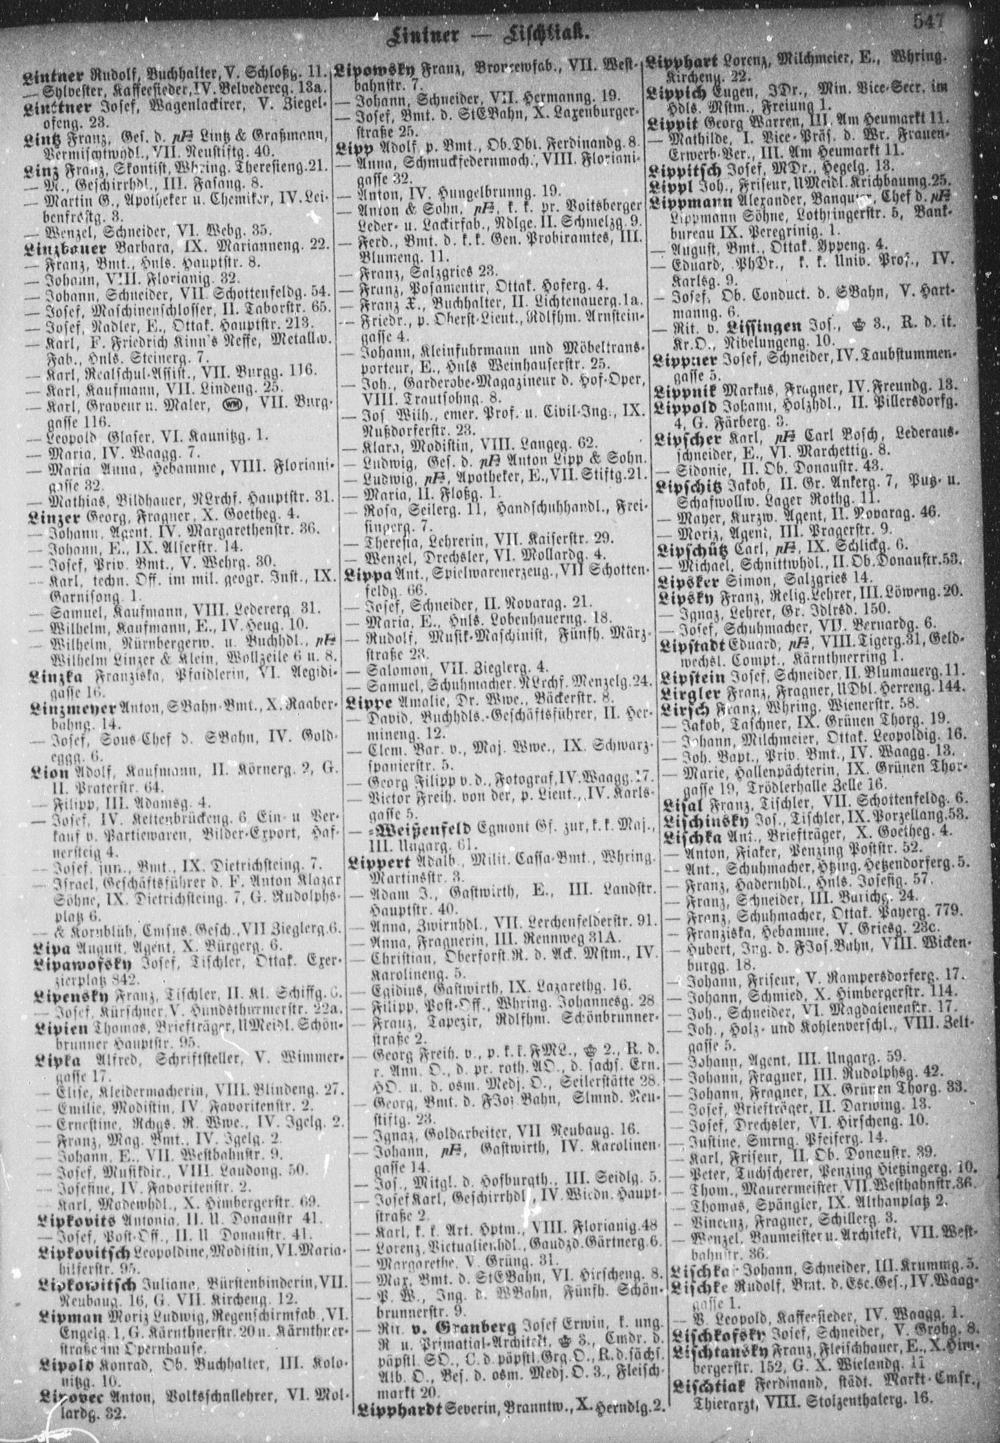 547
Lintner — Lischtiak.
Lintner Rudolf, Buchhalter, V. Schloßg. 11.
— Sylvester, Kaffeesieder, IV. Belvedereg. 13a.
Linttner Josef, Wagenlackirer, V. Ziegel-
ofeng. 23.
Lintz Franz, Ges. d. Lintz & Graßmann,
Vermischtwhdl., VII. Neustiftg. 40.
Linz Franz, Skontist, Whring. Theresieng. 21.
— M., Geschirrhdl., III. Fasang. 8.
— Martin G., Apotheker u. Chemiker, IV. Lei-
benfrostg. 3.
— Wenzel, Schneider, VI. Webg. 35.
Linzbauer Barbara, IX. Marianneng. 22.
— Franz, Bmt., Hnls. Hauptstr. 8.
— Johann, VIII. Florianig. 32.
— Johann, Schneider, VII. Schottenfeldg. 54.
— Josef, Maschinenschlosser, II. Taborstr. 65.
— Josef, Nadler, E., Ottak. Hauptstr. 213.
— Karl, F. Friedrich Kinn's Neffe, Metallw.
Fab., Hnls. Steinerg. 7.
— Karl, Realschul-Assist., VII. Burgg. 116.
— Karl, Kaufmann, VII. Lindeng. 25.
— Karl, Graveur u. Maler, VII. Burg-
gasse 116.
— Leopold Glaser, VI. Kaunitzg. 1.
— Maria, IV. Waagg. 7.
— Maria Anna, Hebamme, VIII. Floriani-
gasse 32.
— Mathias, Bildhauer, RLrchf. Hauptstr. 31.
Linzer Georg, Fragner, X. Goetheg. 4.
— Johann, Agent, IV. Margarethenstr. 36.
— Johann, E., IX. Alserstr. 14.
— Josef, Priv. Bmt., V. Wehrg. 30.
— Karl, techn. Off. im mil. geogr. Inst., IX.
Garnisong. 1.
— Samuel, Kaufmann, VIII. Ledererg. 31.
— Wilhelm, Kaufmann, E., IV. Heug. 10.
— Wilhelm, Nürnbergerw. u. Buchhdl.,
Wilhelm Linzer & Klein, Wollzeile 6 u. 8.
Linzka Franziska, Pfaidlerin, VI. Aegidi-
gasse 16.
Linzmeyer Anton, SBahn-Bmt., X. Raaber-
bahng. 14.
— Josef, Sous-Chef d. SBahn, IV. Gold-
eggg. 6.
Lion Adolf, Kaufmann, II. Körnerg. 2, G.
II. Praterstr. 64.
— Filipp, III. Adamsg. 4.
— Josef, IV. Kettenbrückeng. 6, Ein- u. Ver-
kauf v. Partiewaren, Bilder-Export, Haf-
nersteig 4.
— Josef jun., Bmt., IX. Dietrichsteing. 7.
— Israel, Geschäftsführer d. F. Anton Klazar
Söhne, IX. Dietrichsteing. 7, G. Rudolphs-
platz 6.
— & Kornblüh, Cmsns. Gesch., VII Zieglerg. 6.
Lipa August, Agent, X. Bürgerg. 6.
Lipawofsky Josef, Tischler, Ottak. Exer-
zierplatz 842.
Lipensky Franz, Tischler, II. Kl. Schiffg. 6.
— Josef, Kürschner, V. Hundsthurmerstr. 22a.
Lipien Thomas, Briefträger, UMeidl. Schön-
brunner Hauptstr. 95.
Lipka Alfred, Schriftsteller, V. Wimmer-
gasse 17.
— Elise, Kleidermacherin, VIII. Blindeng. 27.
— Emilie, Modistin, IV. Favoritenstr. 2.
— Ernestine, Rchgs. R. Wwe., IV. Igelg. 2.
— Franz, Mag. Bmt., IV. Igelg. 2.
— Johann, E., VII. Westbahnstr. 9.
— Josef, Musikdir., VIII. Laudong. 50.
— Josefine, IV. Favoritenstr. 2.
— Karl, Modewhdl., X. Himbergerstr. 69.
Lipkovits Antonia, II. U. Donaustr 41.
— Josef, Post-Off., II. U. Donaustr. 41.
Lipkovitsch Leopoldine, Modistin, VI. Maria-
hilferstr. 95.
Lipkowitsch Juliane, Bürstenbinderin, VII.
Neubaug. 16, G. VII. Kircheng. 12.
Lipman Moriz Ludwig, Regenschirmfab., VI.
Engelg. 1, G. Kärnthnerstr. 20 u. Kärnthner-
straße im Opernhause.
Lipold Konrad, Ob. Buchhalter, III. Kolo-
nitzg. 10.
Lipovec Anton, Volksschullehrer, VI. Mol-
lardg. 32.
Lipowsky Franz, Bronzewfab., VII. West-
bahnstr. 7.
— Johann, Schneider, VII. Hermanng. 19.
— Josef, Bmt. d. StEBahn, X. Laxenburger-
straße 25.
Lipp Adolf, p. Bmt., Ob. Dbl. Ferdinandg. 8.
— Anna, Schmuckfedernmoch., VIII. Floriani-
gasse 32.
— Anton, IV. Hungelbrunng. 19.
— Anton & Sohn, k. k. pr. Voitsberger
Leder- u. Lackirfab., Rdlge. II. Schmelzg. 9.
— Ferd., Bmt. d. k. k. Gen. Probiramtes, III.
Blumeng. 11.
— Franz, Salzgries 23.
— Franz, Posamentir, Ottak. Hoferg. 4.
— Franz X., Buchhalter, II. Lichtenauerg. 1a.
— Friedr., p. Oberst-Lieut., Rdlfhm. Arnstein-
gasse 4.
— Johann, Kleinfuhrmann und Möbeltrans-
porteur, E., Hnls Weinhauserstr. 25.
— Joh., Garderobe-Magazineur d. Hof-Oper,
VIII. Trautsohng. 8.
— Jos. Wilh., emer. Prof. u. Civil-Ing., IX.
Nußdorferstr. 23.
— Klara, Modistin, VIII. Langeg. 62.
— Ludwig, Ges. d. Anton Lipp & Sohn.
— Ludwig, Apotheker, E., VII. Stiftg. 21.
— Maria, II. Floßg. 1.
— Rosa, Seilerg. 11, Handschuhhandl., Frei-
singerg. 7.
— Theresia, Lehrerin, VII. Kaiserstr. 29.
— Wenzel, Drechsler, VI. Mollardg. 4.
Lippa Ant., Spielwarenerzeug., VII Schotten-
feldg. 66.
— Josef, Schneider, II. Novarag. 21.
— Maria, E., Hnls. Lobenhauerng. 18.
— Rudolf, Musik-Maschinist, Fünfh. März-
straße 23.
— Salomon, VII. Zieglerg. 4.
— Samuel, Schuhmacher, RLrchf. Menzelg. 24.
Lippe Amalie, Dr. Wwe., Bäckerstr. 8.
— David, Buchhdls.-Geschäftsführer, II. Her-
mineng. 12.
— Clem. Bar. v., Maj. Wwe., IX. Schwarz-
spanierstr. 5.
— Georg Filipp v. d., Fotograf, IV. Waagg. 17.
— Victor Freih. von der, p. Lieut., IV. Karls-
gasse 5.
— =Weißenfeld Egmont Gf. zur, k. k. Maj.,
III. Ungarg. 61.
Lippert Adalb., Milit. Cassa-Bmt., Whring.
Martinsstr. 3.
— Adam J., Gastwirth, E., III. Landstr.
Hauptstr. 40.
— Anna, Zwirnhdl., VII. Lerchenfelderstr. 91.
— Anna, Fragnerin, III. Rennweg 31A.
— Christian, Oberforst.R. d. Ack. Mstm., IV.
Karolineng. 5.
— Egidius, Gastwirth, IX. Lazarethg. 16.
— Filipp, Post-Off., Whring. Johannesg. 28
— Franz, Tapezir, Rdlfhm. Schönbrunner-
straße 2.
— Georg Freih. v., p. k. k. FML., 2., R. d.
r. Ann. O., d. pr. roth. AO., d. sächs. Ern.
HO. u. d. osm. Medj. O., Seilerstätte 28.
— Georg, Bmt. d. FJos Bahn, Slmnd. Neu-
stiftg. 23.
— Ignaz, Goldarbeiter, VII Neubaug. 16.
— Johann, Gastwirth, IV. Karolinen-
gasse 14.
— Jos., Mitgl. d. Hofburgth., III. Seidlg. 5.
— Josef Karl, Geschirrhdl., IV. Wiedn. Haupt-
straße 2.
— Karl, k. k. Art. Hptm., VIII. Florianig. 48
— Lorenz, Victualier.hdl., Gaudzd. Gärtnerg. 6.
— Margarethe, V. Grüng. 31.
— Max, Bmt. d. StEBahn, VI. Hirscheng. 8.
— P. W., Ing. d. WBahn, Fünfh. Schön-
brunnerstr. 9.
— Rit. v. Granberg Josef Erwin, k. ung.
R. u. Primatial-Architekt, 3., Cmdr. d.
päpstl. SO., C. d. päpstl. Grg. O., R. d. sächs.
Alb. O., Bes. d. osm. Medj. O. 3., Fleisch-
markt 20.
Lipphardt Severin, Branntw., X. Herndlg. 2.
Lipphart Lorenz, Milchmeier, E., Whring.
Kircheng. 22.
Lippich Eugen, JDr., Min. Vice-Secr. im
Hdls. Mstm., Freiung 1.
Lippit Georg Warren, III. Am Heumarkt 11.
— Mathilde, I. Vice-Präs. d. Wr. Frauen-
Erwerb-Ver., III. Am Heumarkt 11.
Lippitsch Josef, MDr., Hegelg. 13.
Lippl Joh., Friseur, UMeidl. Krichbaumg. 25.
Lippmann Alexander, Banquier, Chef d.
Lippmann Söhne, Lothringerstr. 5, Bank-
bureau IX. Peregrinig. 1.
— August, Bmt., Ottak. Eppeng. 4.
— Eduard, PhDr., k. k. Univ. Prof., IV.
Karlsg. 9.
— Josef, Ob. Conduct. d. SBahn, V. Hart-
manng. 6.
— Rit. v. Lissingen Jos., 3., R. d. it.
Kr. O., Nibelungeng. 10.
Lippner Josef, Schneider, IV. Taubstummen-
gasse 5.
Lippnik Markus, Fragner, IV. Freundg. 13.
Lippold Johann, Holzhdl., II. Pillersdorfg.
4, G. Färberg. 3.
Lipscher Karl, Carl Bosch, Lederaus-
schneider, E., VI. Marchettig. 8.
— Sidonie, II. Ob. Donaustr. 43.
Lipschitz Jakob, II. Gr. Ankerg. 7, Putz- u.
Schafwollw. Lager Rothg. 11.
— Mayer, Kurzw. Agent, II. Novarag. 46.
— Moriz, Agent, III. Pragerstr. 9.
Lipschütz Carl, IX. Schlickg. 6.
— Michael, Schnittwhdl., II. Ob. Donaustr. 53.
Lipsker Simon, Salzgries 14.
Lipsky Franz, Relig. Lehrer, III. Löweng. 20.
— Ignaz, Lehrer, Gr. Jdlrsd. 150.
— Josef, Schuhmacher, VII. Bernardg. 6.
Lipstadt Eduard, VIII. Tigerg. 31, Geld-
wechsl. Compt., Kärnthnerring 1.
Lipstein Josef, Schneider, II. Blumauerg. 11.
Lirgler Franz, Fragner, UDbl. Herreng. 144.
Lirsch Franz, Whring. Wienerstr. 58.
— Jakob, Taschner, IX. Grünen Thorg. 19.
— Johann, Milchmeier, Ottak. Leopoldig. 16.
— Joh. Bapt., Priv. Bmt., IV. Waagg. 13.
— Marie, Hallenpächterin, IX. Grünen Thor-
gasse 19, Trödlerhalle Zelle 16.
Lisal Franz, Tischler, VII. Schottenfeldg. 6.
Lischinsky Jos., Tischler, IX. Porzellang. 53.
Lischka Ant., Briefträger, X. Goetheg. 4.
— Anton, Fiaker, Penzing Poststr. 52.
— Ant., Schuhmacher, Htzing. Hetzendorferg. 5.
— Franz, Hadernhdl., Hnls. Josefig. 57.
— Franz, Schneider, III. Barichg. 24.
— Franz, Schuhmacher, Ottak. Payerg. 779.
— Franziska, Hebamme, V. Griesg. 23c.
— Hubert, Ing. d. FJos. Bahn, VIII. Wicken-
burgg. 18.
— Johann, Friseur, V. Rampersdorferg. 17.
— Johann, Schmied, X. Himbergerstr. 114.
— Joh., Schneider, VI. Magdalenenstr. 17.
— Joh., Holz- und Kohlenverschl., VIII. Zelt-
gasse 5.
— Johann, Agent, III. Ungarg. 59.
— Johann, Fragner, III. Rudolphsg. 42.
— Johann, Fragner, IX. Grünen Thorg. 33.
— Josef, Briefträger, II. Darwing. 13.
— Josef, Drechsler, VI. Hirscheng. 10.
— Justine, Smrng. Pfeiferg. 14.
— Karl, Friseur, II. Ob. Donaustr. 39.
— Peter, Tuchscherer, Penzing Hietzingerg. 10.
— Thom., Maurermeister, VII. Westbahnstr. 36.
— Thomas, Spängler, IX. Althanplatz 2.
— Vincenz, Fragner, Schillerg. 3.
— Wenzel, Baumeister u. Architekt, VII. West-
bahnstr. 36.
Lischka Johann, Schneider, III. Krummg. 5.
Lischke Rudolf, Bmt. d. Esc. Ges., IV. Waag-
gasse 1.
— V. Leopold, Kaffeesieder, IV. Waagg. 1.
Lischkofsky Josef, Schneider, V. Grohg. 8.
Lischtansky Franz, Fleischhauer, E., X. Him-
bergerstr. 152, G. X. Wielandg. 11
Lischtiak Ferdinand, städt. Markt-Cmsr.,
Thierarzt, VIII. Stolzenthalerg. 16.